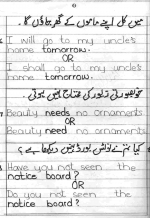 میں کل اپنے ماموں کے گھر جاؤں گا۔
I will go to my uncle's
home tomorrow.
OR
I shall go to my uncle's
home tomorrow.
خوبصورتی زیور کی محتاج نہیں ہوتی۔
Beauty needs no ornaments
OR
Beauty need no ornaments.
کیا تم نے نوٹس بورڈ نہیں دیکھا ہے؟
Have you not seen the
notice board?
OR
Do you not seen the
notice board?